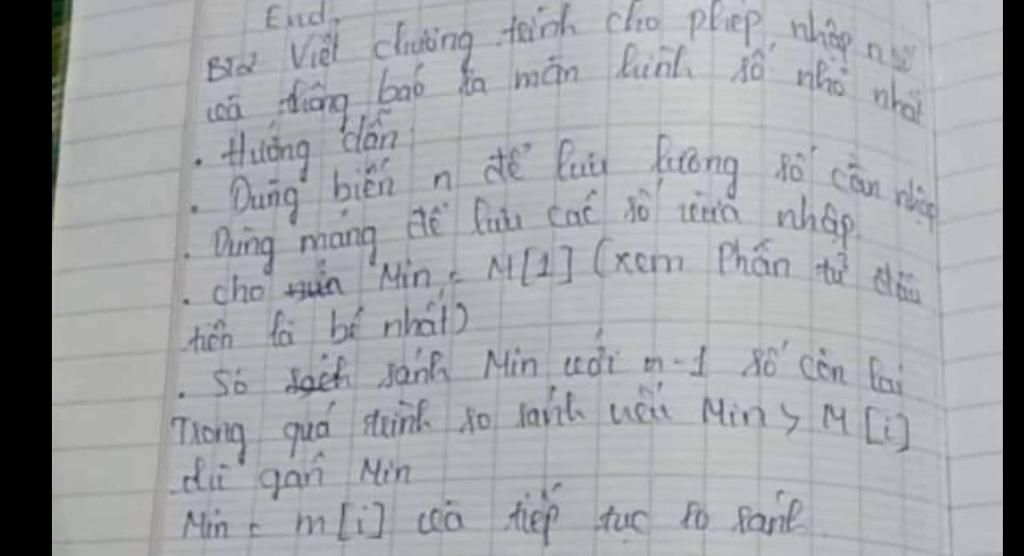 End.
Bài Viết chương trình cho phép nhập n số
và thông báo ra màn hình số nhỏ nhất
. Hướng dẫn
. Dùng biến n để lưu lượng số cần nhập
. Dùng mảng để lưu các số vừa nhập
. cho Min = M[1] (xem Phần tử đầu
tiên là bé nhất)
. Số sánh Min với n-1 số còn lại
Trong quá trình so sánh nếu Min > M[i]
thì gán Min
Min = m[i] và tiếp tục so sánh